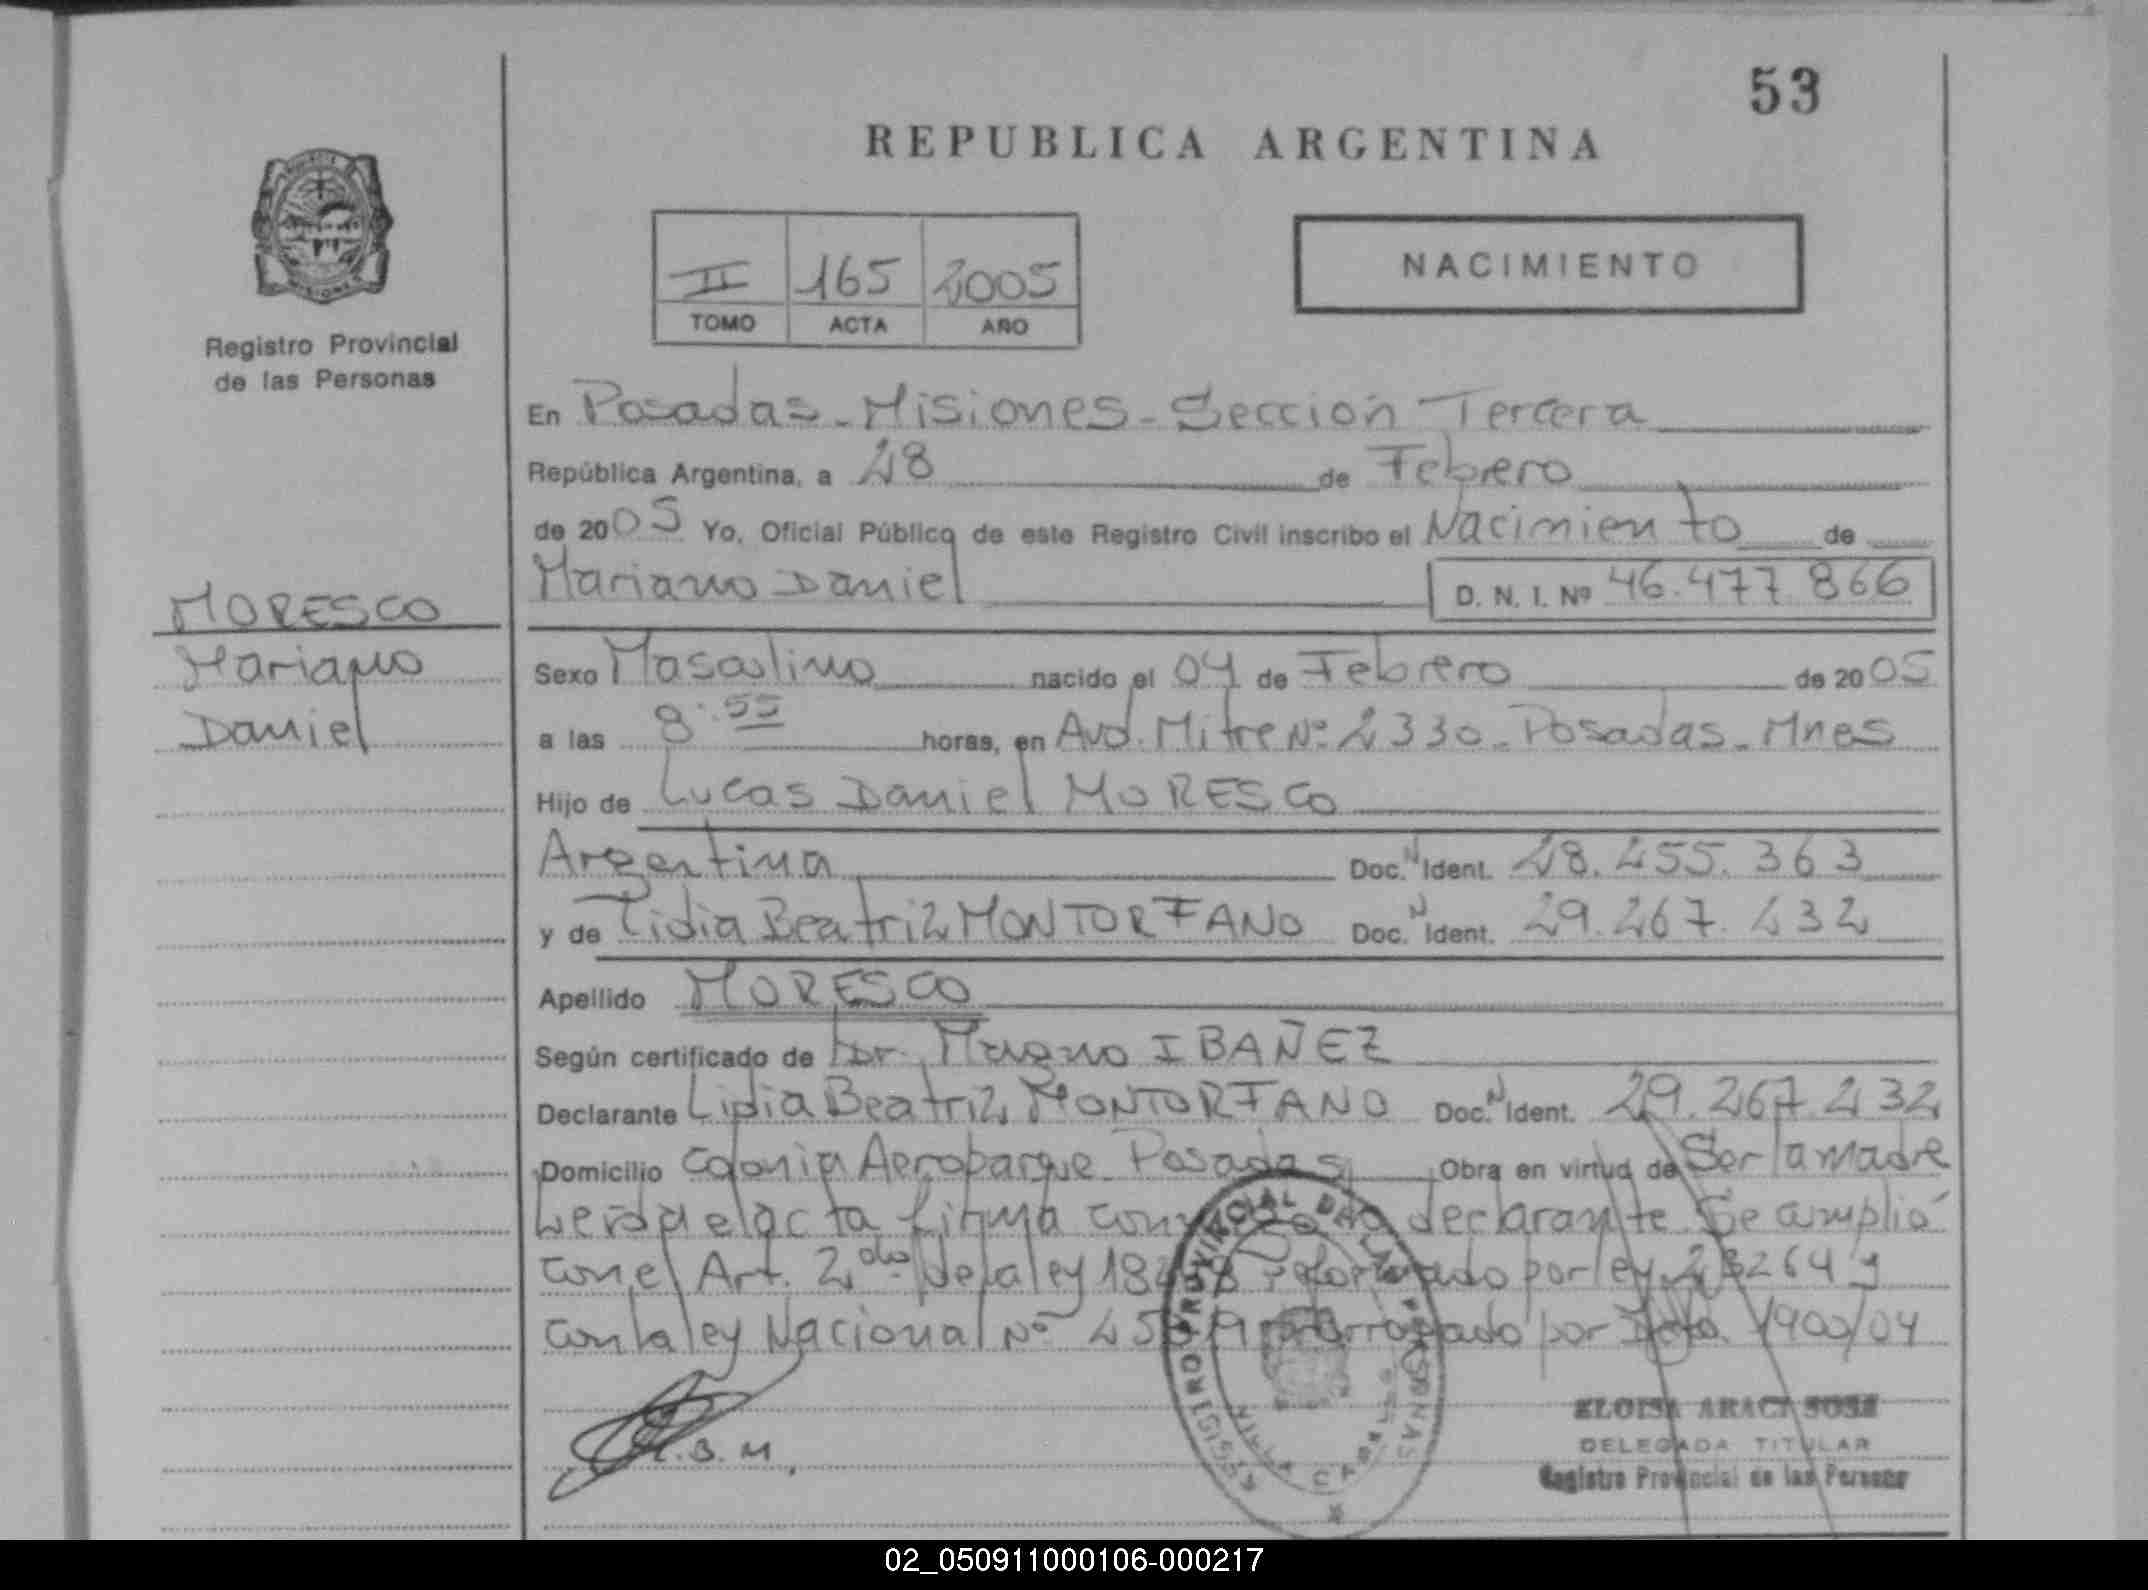 53
REPUBLICA ARGENTINA
II 165 2005
TOMO ACTA AÑO
NACIMIENTO
Registro Provincial
de las Personas
En Posadas - Misiones - Sección Tercera
República Argentina, a 28 de Febrero
de 2005 Yo, Oficial Público de este Registro Civil inscribo el Nacimiento de
Mariano Daniel D. N. I. Nº 46.477.866
MORESCO
Mariano
Daniel
Sexo Masculino nacido el 04 de Febrero de 2005
a las 8:55 horas, en Avd. Mitre Nº 2330 - Posadas - Mnes
Hijo de Lucas Daniel MORESCO
Argentina Doc. N Ident. 28.255.363
y de Lidia Beatriz MONTORFANO Doc. N Ident. 29.267.232
Apellido MORESCO
Según certificado de Dr. Magno IBAÑEZ
Declarante Lidia Beatriz MONTORFANO Doc. N Ident. 29.267.232
Domicilio Colonia Aeroparque Posadas Obra en virtud de Ser la madre
Leida el acta firma declarante Se amplió
con el Art. 2do de la ley por ley 23264 y
con la ley Nacional Nº prorrogado por Dcto. 1900/04
L.B.M.
REGISTRO PROVINCIAL DE LAS PERSONAS
VILLA CABELLO
ELOISA ARACI SOSA
DELEGADA TITULAR
Registro Provincial de las Personas
02_050911000106-000217